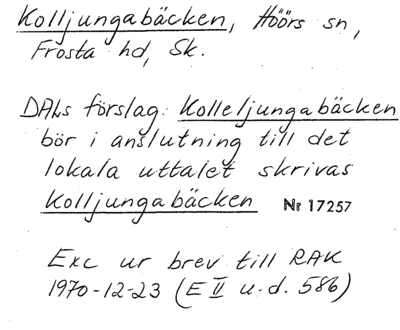 Kolljungabäcken, Höörs sn,
Frosta hd, Sk.
DALs förslag: Kolleljungabäcken
bör i anslutning till det
lokala uttalet skrivas
Kolljungabäcken Nr 17257
Exc ur brev till RAK
1970-12-23 (E II u.d. 586)